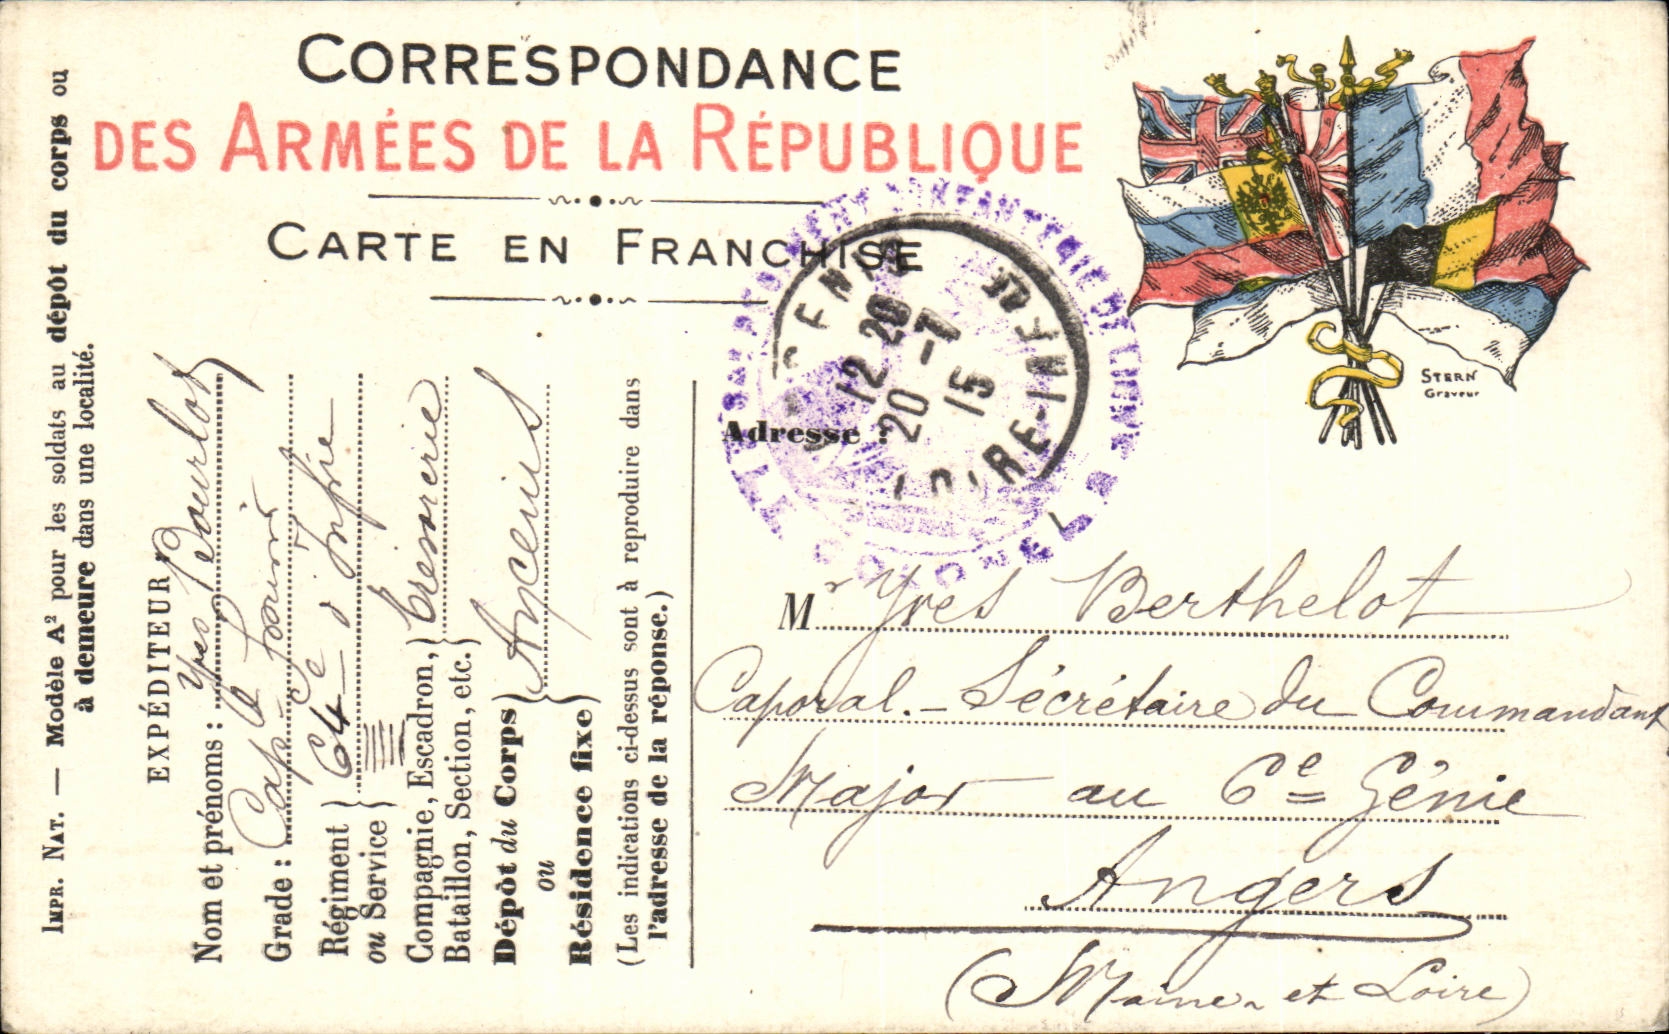 CORRESPONDANCE
DES ARMÉES DE LA RÉPUBLIQUE
CARTE EN FRANCHISE
STERN
Graveur
IMPR. NAT. — Modèle A² pour les soldats au dépôt du corps ou
à demeure dans une localité.
EXPÉDITEUR
Nom et prénoms : Yves Bourlot
Grade : Cap.
Régiment } 64e d'Infrie
ou Service }
Compagnie, Escadron, }
Bataillon, Section, etc. }
Dépôt du Corps } Ancenis
ou
Résidence fixe }
(Les indications ci-dessus sont à reproduire dans
l'adresse de la réponse.)
12 20
20 -7
15
LOIRE-INF
Adresse :
Mr Yves Berthelot
Caporal. - Sécrétaire du Commandant
Major au 6e Génie
Angers
(Maine - et Loire)